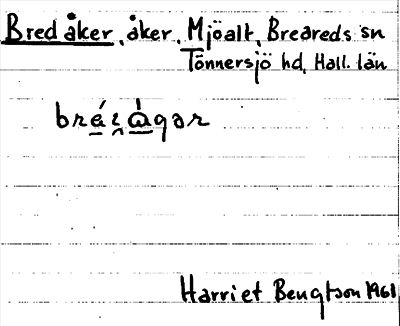 Bred åker, åker, Mjöalt, Breareds sn
Tönnersjö hd, Hall. län
Harriet Bengtson 1961